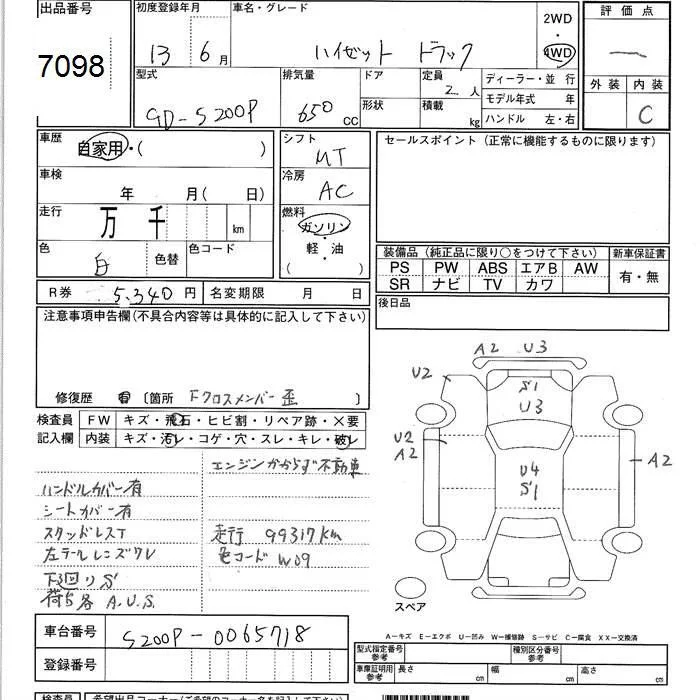 出品番号
7098
初度登録年月
13年 6月
車名・グレード
ハイゼット トラック
2WD
4WD
評価点
—
外装 内装
C
型式
GD-S200P
排気量
650 CC
ドア
形状
定員
2人
積載
kg
ディーラー・並行
モデル年式 年
ハンドル 左・右
車歴
自家用・( )
車検
年 月( 日)
走行
万 千 km
色
白
色替
色コード
シフト
MT
冷房
AC
燃料
ガソリン
・
軽・油
( )
セールスポイント(正常に機能するものに限ります)
装備品(純正品に限り○をつけて下さい)
PS PW ABS エアB AW
SR ナビ TV カワ
新車保証書
有・無
R券 5,340円 名変期限 月 日
後日品
注意事項申告欄(不具合内容等は具体的に記入して下さい)
修復歴 有 〔箇所 Fクロスメンバー歪 〕
検査員
記入欄
FW キズ・飛石・ヒビ割・リペア跡・×要
内装 キズ・汚レ・コゲ・穴・スレ・キレ・破レ
エンジンかからず不動車
ハンドルカバー有
シートカバー有
スタッドレスT
左テールレンズワレ
下廻りS
荷台各A.U.S.
走行 99317km
色コード W09
A2 U3
U2
S1
U3
U2
A2
U4
S1
A2
スペア
A-キズ E-エクボ U-凹み W-補修跡 S-サビ C-腐食 XX-交換済
車台番号
S200P-0065718
登録番号
型式指定番号
参考
種別区分番号
参考
車庫証明用
参考
長さ cm 幅 cm 高さ cm
検査員